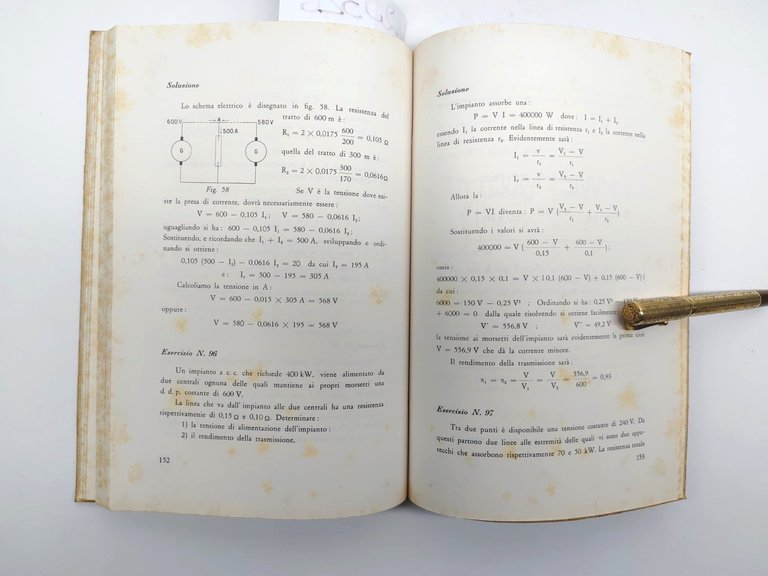 Soluzione
Lo schema elettrico è disegnato in fig. 58. La resistenza del
tratto di 600 m è:
600V
580V
500A
G
G
Fig. 58
R₁ = 2 × 0,0175 600/200 = 0,105 Ω
quella del tratto di 300 m è:
R₂ = 2 × 0,0175 300/170 = 0,0616Ω
Se V è la tensione dove esi-
ste la presa di corrente, dovrà necessariamente essere:
V = 600 − 0,105 I₁; V = 580 − 0,0616 I₂;
uguagliando si ha: 600 − 0,105 I₁ = 580 − 0,0616 I₂;
Sostituendo, e ricordando che I₁ + I₂ = 500 A, sviluppando e ordi-
nando si ottiene:
0,105 (500 − I₂) − 0,0616 I₂ = 20 da cui I₂ = 195 A
e: I₁ = 500 − 195 = 305 A
Calcoliamo la tensione in A:
V = 600 − 0,015 × 305 A = 568 V
oppure:
V = 580 − 0,0616 × 195 = 568 V
Esercizio N. 96
Un impianto a c. c. che richiede 400 kW, viene alimentato da
due centrali ognuna delle quali mantiene ai propri morsetti una
d. d. p. costante di 600 V.
La linea che va dall'impianto alle due centrali ha una resistenza
rispettivamente di 0,15 Ω e 0,10 Ω. Determinare:
1) la tensione di alimentazione dell'impianto:
2) il rendimento della trasmissione.
152
Soluzione
L'impianto assorbe una:
P = V I = 400000 W dove: I = I₁ + I₂
essendo I₁ la corrente nella linea di resistenza r₁ e I₂ la corrente nella
linea di resistenza r₂. Evidentemente sarà:
I₁ = v/r₁ = (V₁ − V)/r₁
I₂ = v/r₂ = (V₂ − V)/r₂
Allora la:
P = VI diventa: P = V (V₁ − V/r₁ + V₂ − V/r₂)
Sostituendo i valori si avrà:
400000 = V (600 − V/0,15 + 600 − V/0,1);
ossia:
400000 × 0,15 × 0,1 = V × [0,1 (600 − V) + 0,15 (600 − V)]
da cui:
6000 = 150 V − 0,25 V² ; Ordinando si ha: 0,25 V² − 150 V
+ 6000 = 0 dalla quale risolvendo si ottiene facilmente
V' = 556,8 V ; V'' = 49,2 V
la tensione ai morsetti dell'impianto sarà evidentemente la prima cioè
V = 556,9 V che dà la corrente minore.
Il rendimento della trasmissione sarà:
η₁ = η₂ = V/V₁ = V/V₂ = 556,9/600 = 0,93
Esercizio N. 97
Tra due punti è disponibile una tensione costante di 240 V. Da
questi partono due linee alle estremità delle quali vi sono due appa-
recchi che assorbono rispettivamente 70 e 50 kW. La resistenza totale
153